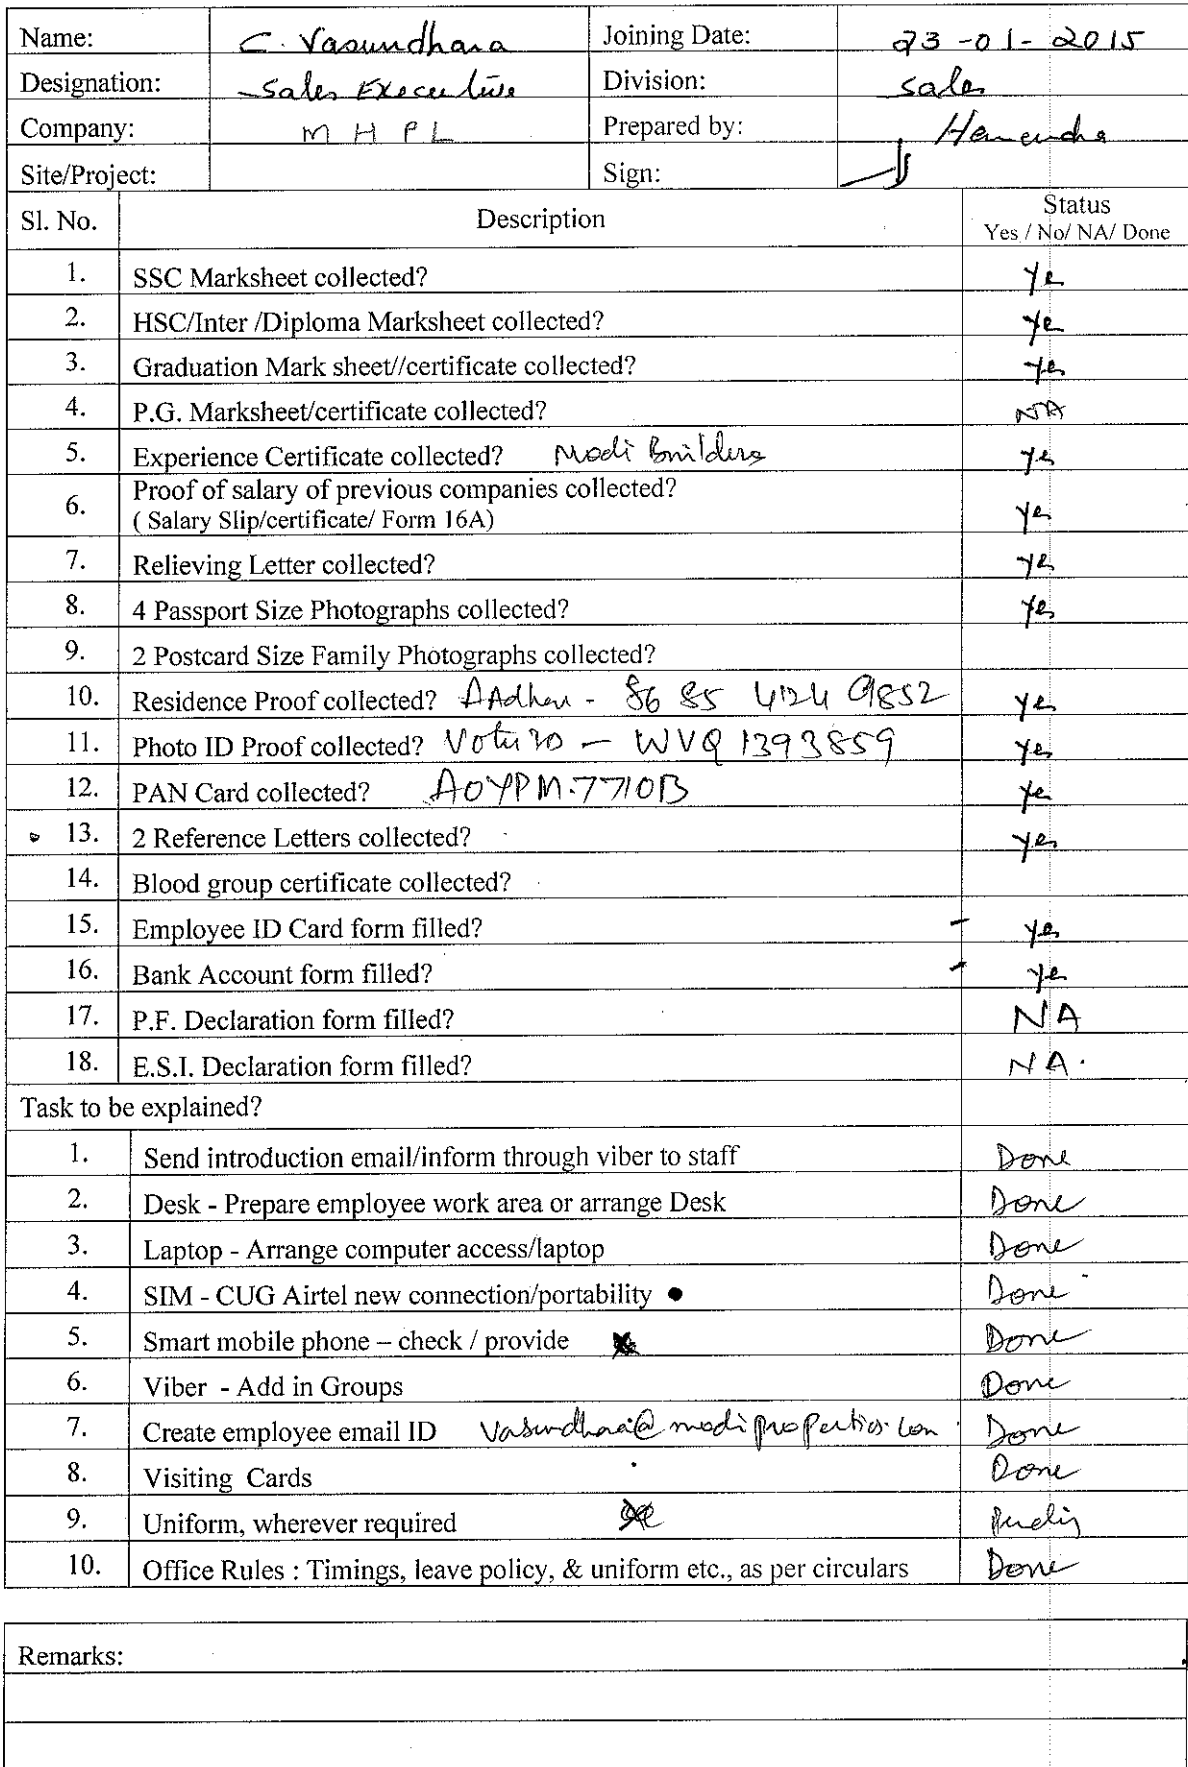 Name: C. Vasundhara Joining Date: 23-01-2015
Designation: Sales Executive Division: Sales
Company: M H P L Prepared by:
Site/Project: Sign:
Sl. No. Description Status
Yes / No/ NA/ Done
1. SSC Marksheet collected? Yes
2. HSC/Inter /Diploma Marksheet collected? Yes
3. Graduation Mark sheet//certificate collected? Yes
4. P.G. Marksheet/certificate collected? NA
5. Experience Certificate collected? Modi Builders Yes
6. Proof of salary of previous companies collected?
( Salary Slip/certificate/ Form 16A) Yes
7. Relieving Letter collected? Yes
8. 4 Passport Size Photographs collected? Yes
9. 2 Postcard Size Family Photographs collected?
10. Residence Proof collected? AAdhar - 86 85 4124 9852 Yes
11. Photo ID Proof collected? Voter ID - WVQ 1393859 Yes
12. PAN Card collected? AOYPM7710B Yes
13. 2 Reference Letters collected? Yes
14. Blood group certificate collected?
15. Employee ID Card form filled? - Yes
16. Bank Account form filled? - Yes
17. P.F. Declaration form filled? NA
18. E.S.I. Declaration form filled? NA.
Task to be explained?
1. Send introduction email/inform through viber to staff Done
2. Desk - Prepare employee work area or arrange Desk Done
3. Laptop - Arrange computer access/laptop Done
4. SIM - CUG Airtel new connection/portability Done
5. Smart mobile phone – check / provide Done
6. Viber - Add in Groups Done
7. Create employee email ID Vasundhara@modiproperties.com Done
8. Visiting Cards Done
9. Uniform, wherever required Pending
10. Office Rules : Timings, leave policy, & uniform etc., as per circulars Done
Remarks: